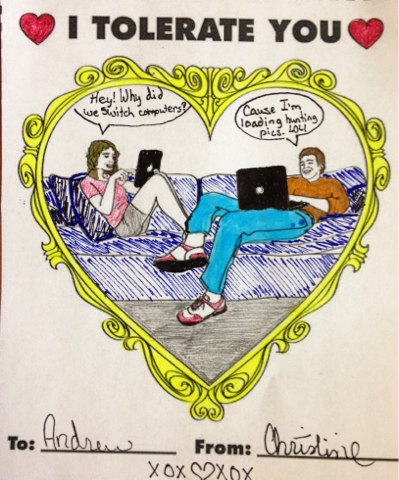 I TOLERATE YOU
Hey! Why did
we switch computers?
Cause I'm
loading hunting
pics. LOL!
To: Andrew From: Christine
XOX♡XOX